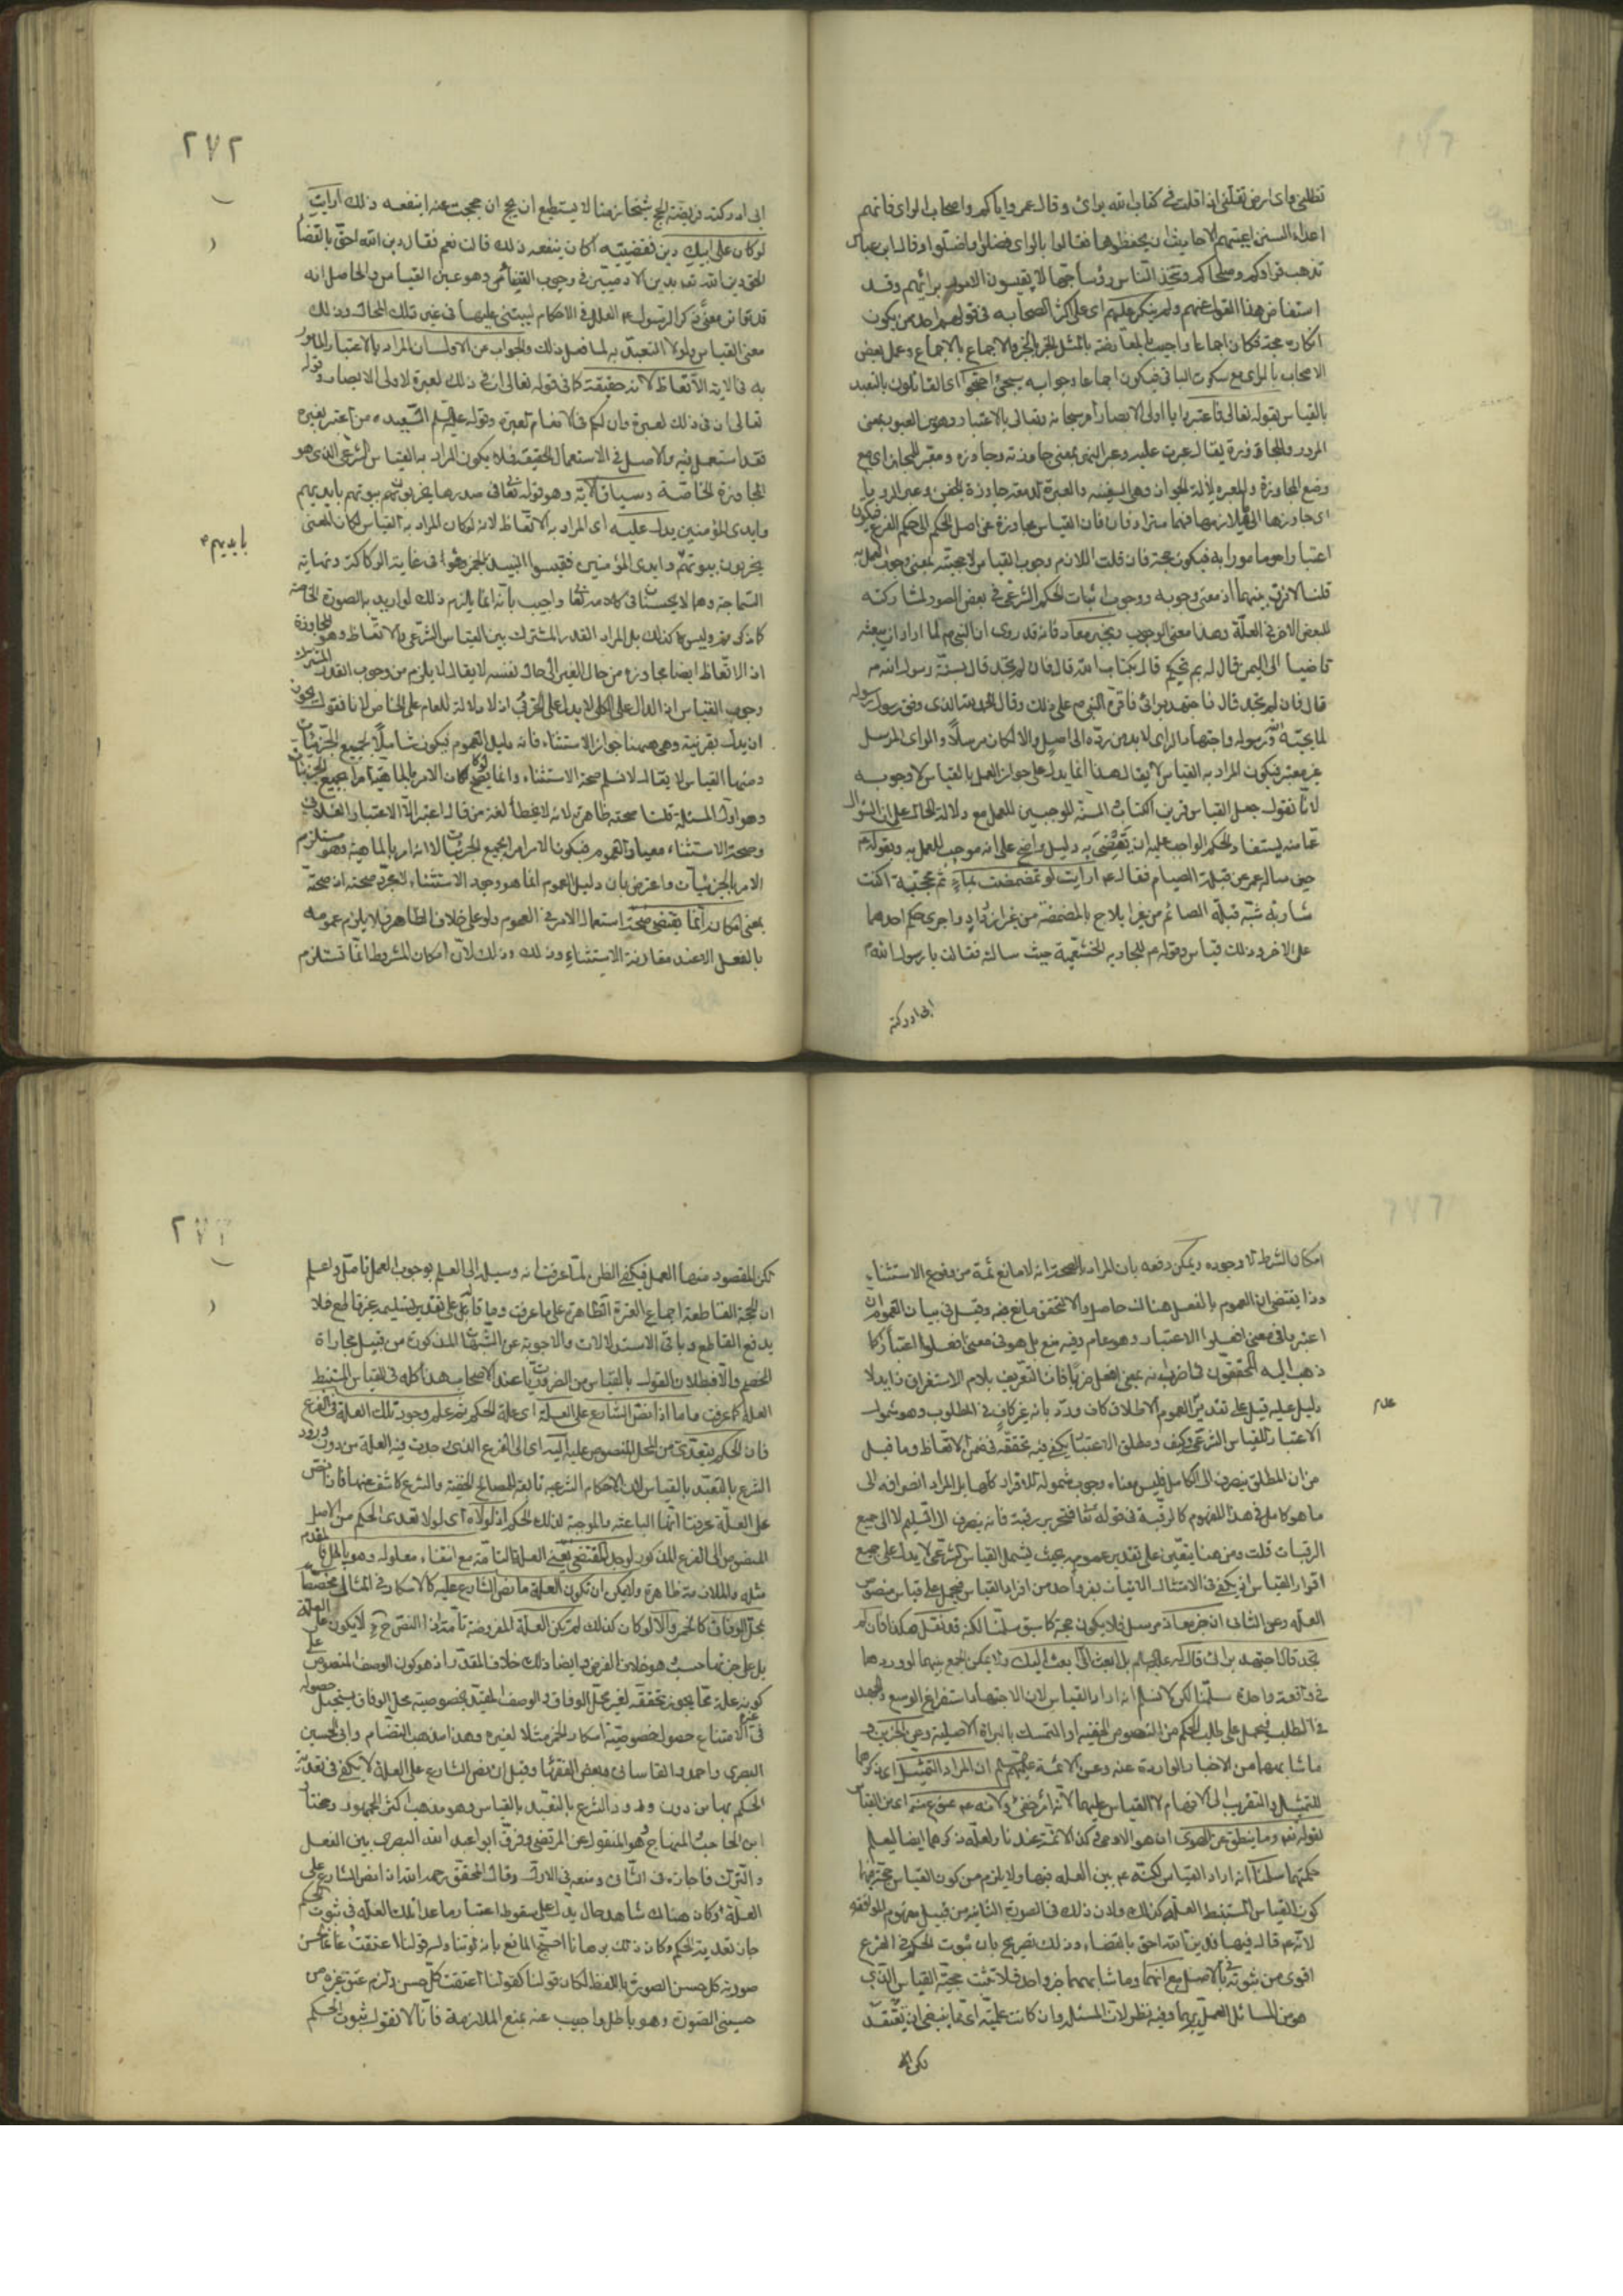 تظلني واي ارض تقلني ان قلت في كتاب الله برائي وقال عمر واياكم واصحاب الراي فانهم
اعداء السنن اعيتهم الاحاديث ان يحفظوها فقالوا بالراي فضلوا واضلوا وقال ابن عباس
تذهب قراؤكم وصلحاؤكم ويتخذ الناس رؤساء جهالا يقيسون الامور برائهم وقد
استفاض هذا القول عنهم ولم ينكر عليهم اي على اكثر الصحابة في قولهم احد من يكون
انكاره حجة فكان اجماعا واجيب بالمعارضة بالمثل الخبر بالخبر والاجماع بالاجماع وعمل بعض
الاصحاب بالراي مع سكوت الباقي فيكون اجماعا وجوابه سيجئ احتجوا اي القائلون بالتعبد
بالقياس بقوله تعالى فاعتبروا يا اولي الابصار امر سبحانه وتعالى بالاعتبار وهو من العبور بمعنى
المرور والمجاوزة يقال عبرت عليه وعبر النهر بمعنى جاوزته وجاوزه ومعبر للمجاز اي موضع
وضع المجاوزة والمعبرة لآلة الجواز وهي السفينة والعبرة الدمعة جاوزة الجفن وعبر الرؤيا
اي جاوزها الى ما يلازمها فهما مترادفان فان القياس مجاوزة عن اصل الحكم الى حكم الفرع فيكون
اعتبارا هو مامورا به فيكون حجة فان قلت اللازم وجوب القياس لا حجيته بمعنى وجوب العمل به
قلنا لا فرق بينهما اذ معنى وجوبه وجوب اثبات الحكم الشرعي في بعض الصور لمشاركته
للبعض الاخر في العلة وهذا معنى الوجوب وبخبر معاذ فانه قد روى ان النبي ص لما اراد ان يبعثه
قاضيا الى اليمن قال له بم تحكم قال بكتاب الله قال فان لم تجد قال بسنة رسول الله ص
قال فان لم تجد قال فاجتهد برائي فاقره النبي ص على ذلك وقال الحمد لله الذي وفق رسول رسوله
لما يحبه الله ورسوله واجتهاد الراي لا بد من رده الى اصل والا لكان مرسلا والراي المرسل
غير معتبر فيكون المراد به القياس لا يقال هذا انما يدل على جواز العمل بالقياس لا وجوبه
لانا نقول جعل القياس قرين الكتاب والسنة الموجبين للعمل مع دلالة الحال على ان السؤال
عما منه يستفاد الحكم الواجب عليه ان يقضي به دليل واضح على انه موجب للعمل به وبقوله ص
حين ساله عمر عن قبلة الصيام فقال ص ارايت لو تمضمضت بماء ثم مججته اكنت
شاربه شبه قبلة الصائم من غير ايلاج بالمضمضة من غير ازدراد واجرى حكم احدهما
على الاخر وذلك قياس وقوله ص للجارية الخثعمية حيث سالته فقالت يا رسول الله ص
ابي ادركته
٢٧٢
ابي ادركته فريضة الحج شيخا زمنا لا يستطيع ان يحج ان حججت عنه اينفعه ذلك ارايت
لو كان على ابيك دين فقضيته اكان ينفعه ذلك قالت نعم فقال دين الله احق بالقضاء
الحق دين الله تعالى بدين الادميين في وجوب القضاء ص وهو عين القياس والحاصل انه
معنى القياس ولولا التعبد به لما فعل ذلك والجواب عن الاول ان المراد بالاعتبار المامور
به في الاية الاتعاظ لانه حقيقة كما في قوله تعالى ان في ذلك لعبرة لاولي الابصار وقوله
تعالى ان في ذلك لعبرة وان لكم في الانعام لعبرة وقوله عليه السلم السعيد من اعتبر بغيره
فقد استعمل فيه والاصل في الاستعمال الحقيقة فلا يكون المراد به القياس الشرعي الذي هو
المجاوزة الخاصة وسياق الاية وهو قوله تعالى في صدرها يخربون بيوتهم بايديهم
وايدي المؤمنين يدل عليه اي المراد به الاتعاظ لانه لو كان المراد به القياس لكان المعنى
بايديهم
يخربون بيوتهم وايدي المؤمنين فقيسوا النبيذ بالخمر وهو في غاية الركاكة ونهاية
السماجة وهما لا يحسنان في كلامه تعالى واجيب بانه انما يلزم ذلك لو اريد به الصورة الخاصة
كما ذكرتموه وليس كذلك بل المراد القدر المشترك بين القياس الشرعي والاتعاظ وهو المجاوزة
اذ الاتعاظ ايضا مجاوزة من حال الغير الى حال نفسه لا يقال لا يلزم من وجوب القدر المشترك
وجوب القياس اذ الدال على الكلي لا يدل على الجزئي اذ لا دلالة للعام على الخاص لانا نقول يجوز
ان يدل بقرينة وهي هيهنا جواز الاستثناء فانه دليل العموم فيكون شاملا لجميع الجزئيات
ومنها القياس لا يقال لا نسلم صحة الاستثناء وانما يصح لو كان الامر بالماهية امرا بجميع الجزئيات
وهو اول المسئلة قلنا صحته ظاهرة لانه لا يخطأ لغة من قال اعتبر الا الاعتبار الفلاني
وصحة الاستثناء معيار العموم فيكون الامر امرا بجميع الجزئيات لا انه امر بالماهية وهو مستلزم
الامر بالجزئيات واعترض بان دليل العموم انما هو وجود الاستثناء لا مجرد صحته اذ صحته
بمعنى امكانه انما يقتضي صحة استعمال الامر في العموم ولو على خلاف الظاهر فلا يلزم عمومه
بالفعل الا عند مقارنة الاستثناء وذلك لان امكان المشروط انما تستلزم
امكان الشرط لا وجوده ويمكن دفعه بان المراد بالصحة انه لا مانع ثمة من وقوع الاستثناء
وذا يقتضي ان العموم بالفعل هناك حاصل والا لتحقق مانع منه وقيل في بيان العموم ان
اعتبروا في معنى افعلوا الاعتبار وهو عام وفيه منع بل هو في معنى افعلوا اعتبارا كما
ذهب اليه المحققون في اضرب انه بمعنى افعل ضربا فان التعريف بلام الاستغراق زايد لا
دليل عليه قيل على تقدير العموم الاطلاق كان ورد بانه غير كاف في المطلوب وهو شمول
عدم
الاعتبار للقياس الشرعي وكيف ومطلق الاعتبار يكفي فيه تحققه في ضمن الاتعاظ وما قيل
من ان المطلق ينصرف الى الكامل فليس معناه وجوب شموله للافراد كلها بل المراد انصرافه الى
ما هو كامل في هذا المفهوم كالرقبة في قوله تعالى فتحرير رقبة فانه ينصرف الى السليم لا الى جميع
الرقبات قلت ومن هنا يتعين على تقدير عمومه بحيث يشمل القياس الشرعي لا يدل على جميع
افراد القياس اذ يكفي في الامتثال الاتيان بفرد واحد من افراد القياس فيحمل على قياس منصوص
العلة وعن الثاني ان خبر معاذ مرسل فلا يكون حجة كما سبق سلمنا لكنه قد نقل هكذا فان لم
تجد قال اجتهد برائي قال له عليه السلم بل ابعث الي ابعث اليك ولا يمكن الجمع بينهما لورودهما
في واقعة واحدة سلمنا لكن لا نسلم انه اراد القياس لان الاجتهاد استفراغ الوسع والجهد
في الطلب فيحمل على طلب الحكم من النصوص الخفية او التمسك بالبراءة الاصلية وعن الخبرين و
ما شابههما من الاخبار الواردة عنه وعن الائمة عليهم السلم ان المراد التمثيل اي ذكرهما
للتمثيل والتقريب الى الافهام لا القياس عليهما لانه امر خفي ولانه ص ممنوع عنه اي عن القياس
لقوله تعالى وما ينطق عن الهوى ان هو الا وحي
حكمتهما سلمنا انه اراد القياس لكنه ص بين العلة فيها ولا يلزم من كون القياس حجة فيها
كون القياس المستنبط العلة كذلك ولان ذلك في الصورة الثانية من قبيل مفهوم الموافقة
لانه ص قال فيها فدين الله احق بالقضاء وذلك تصريح بان ثبوت الحكم في الفرع
اقوى من ثبوته في الاصل مع انهما وما شابههما خبر واحد فلا تثبت حجية القياس الذي
هو من المسائل العملية بهما وفيه نظر لان المسئلة وان كانت علمية اي مما ينبغي ان يعتقد
لكن ال
لكن المقصود منها العمل فيكفي الظن لما عرفت انه وسيلة الى العلم بوجوب العمل تامل واعلم
ان الحجة القاطعة اجماع العترة الطاهرة على ما عرفت وما قابل على تقدير تسليمه غير قاطع فلا
يدفع القاطع وباقي الاستدلالات والاجوبة عن الشبهات المذكورة من قبيل مجاراة
الخصم والا فبطلان القول بالقياس من الضروريات عند الاصحاب هذا كله في القياس المستنبط
العلة كما عرفت واما اذا نص الشارع على العلة اي علة الحكم ثم علم وجود تلك العلة في الفرع
فان الحكم يتعدى من المحل المنصوص عليه اليه اي الى الفرع الذي وجدت فيه العلة من دون ورود
الشرع بالتعبد بالقياس لان الاحكام الشرعية تابعة للمصالح الخفية والشرع كاشف عنها فان نص
على العلة عرفنا انها الباعثة والموجبة لذلك الحكم اذ لولاه اي لولا تعدى الحكم من الاصل
المنصوص الى الفرع المذكور لوجد المقتضي يعني العلة التامة مع انتفاء معلوله وهو باطل فالمقدم
مثله والملازمة ظاهرة ولا يمكن ان تكون العلة ما نص الشارع عليه كالاسكار في المثال مختصا
بمحل الوفاق كالخمر والا لو كان كذلك لم تكن العلة المفروضة تامة اذ النص ح لا يكون على العلة
بل على جزئها حسب وهو خلاف الفرض وايضا ذلك خلاف المقدر اذ هو كون الوصف المنصوص على
كونه علة مما يجوز تحققه لغير محل الوفاق والوصف المقيد بخصوصية محل الوفاق يستحيل حصوله
في غيره لامتناع حصول خصوصية اسكار الخمر مثلا لغيره وهذا مذهب النظام وابي الحسين
البصري واحمد والقاساني وبعض الفقهاء وقيل ان نص الشارع على العلة لا يكفي في تعدية
الحكم بها من دون ورود الشرع بالتعبد بالقياس وهو مذهب اكثر الجمهور ومختار
ابن الحاجب والمنهاج وهو المنقول عن المرتضى وفرق ابو عبد الله البصري بين الفعل
والترك فاجازه في الثاني ومنعه في الاول وقال المحقق رحمه الله اذا نص الشارع على
العلة وكان هناك شاهد حال يدل على سقوط اعتبار ما عدا تلك العلة في ثبوت الحكم
جاز تعدية الحكم وكان ذلك برهانا احتج المانع بانه لو
صورته كل حسن الصورة باللفظ لكان قولنا كقولنا اعتقت كل حسن ولزم عتق غيره من
حسيني الصورة وهو باطل واجيب عنه بمنع الملازمة فانا لا نقول بثبوت الحكم